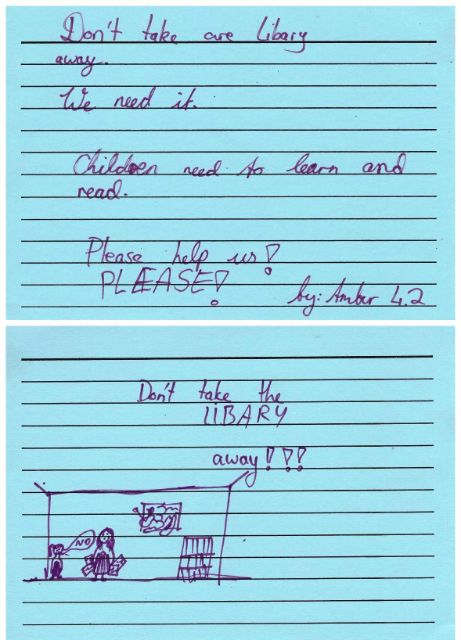 Don't take are Libary
away.
We need it.
Children need to learn and
read.
Please help us!
PLEASE!
by: Amber 4.2
Don't take the
LIBARY
away!!!
NO